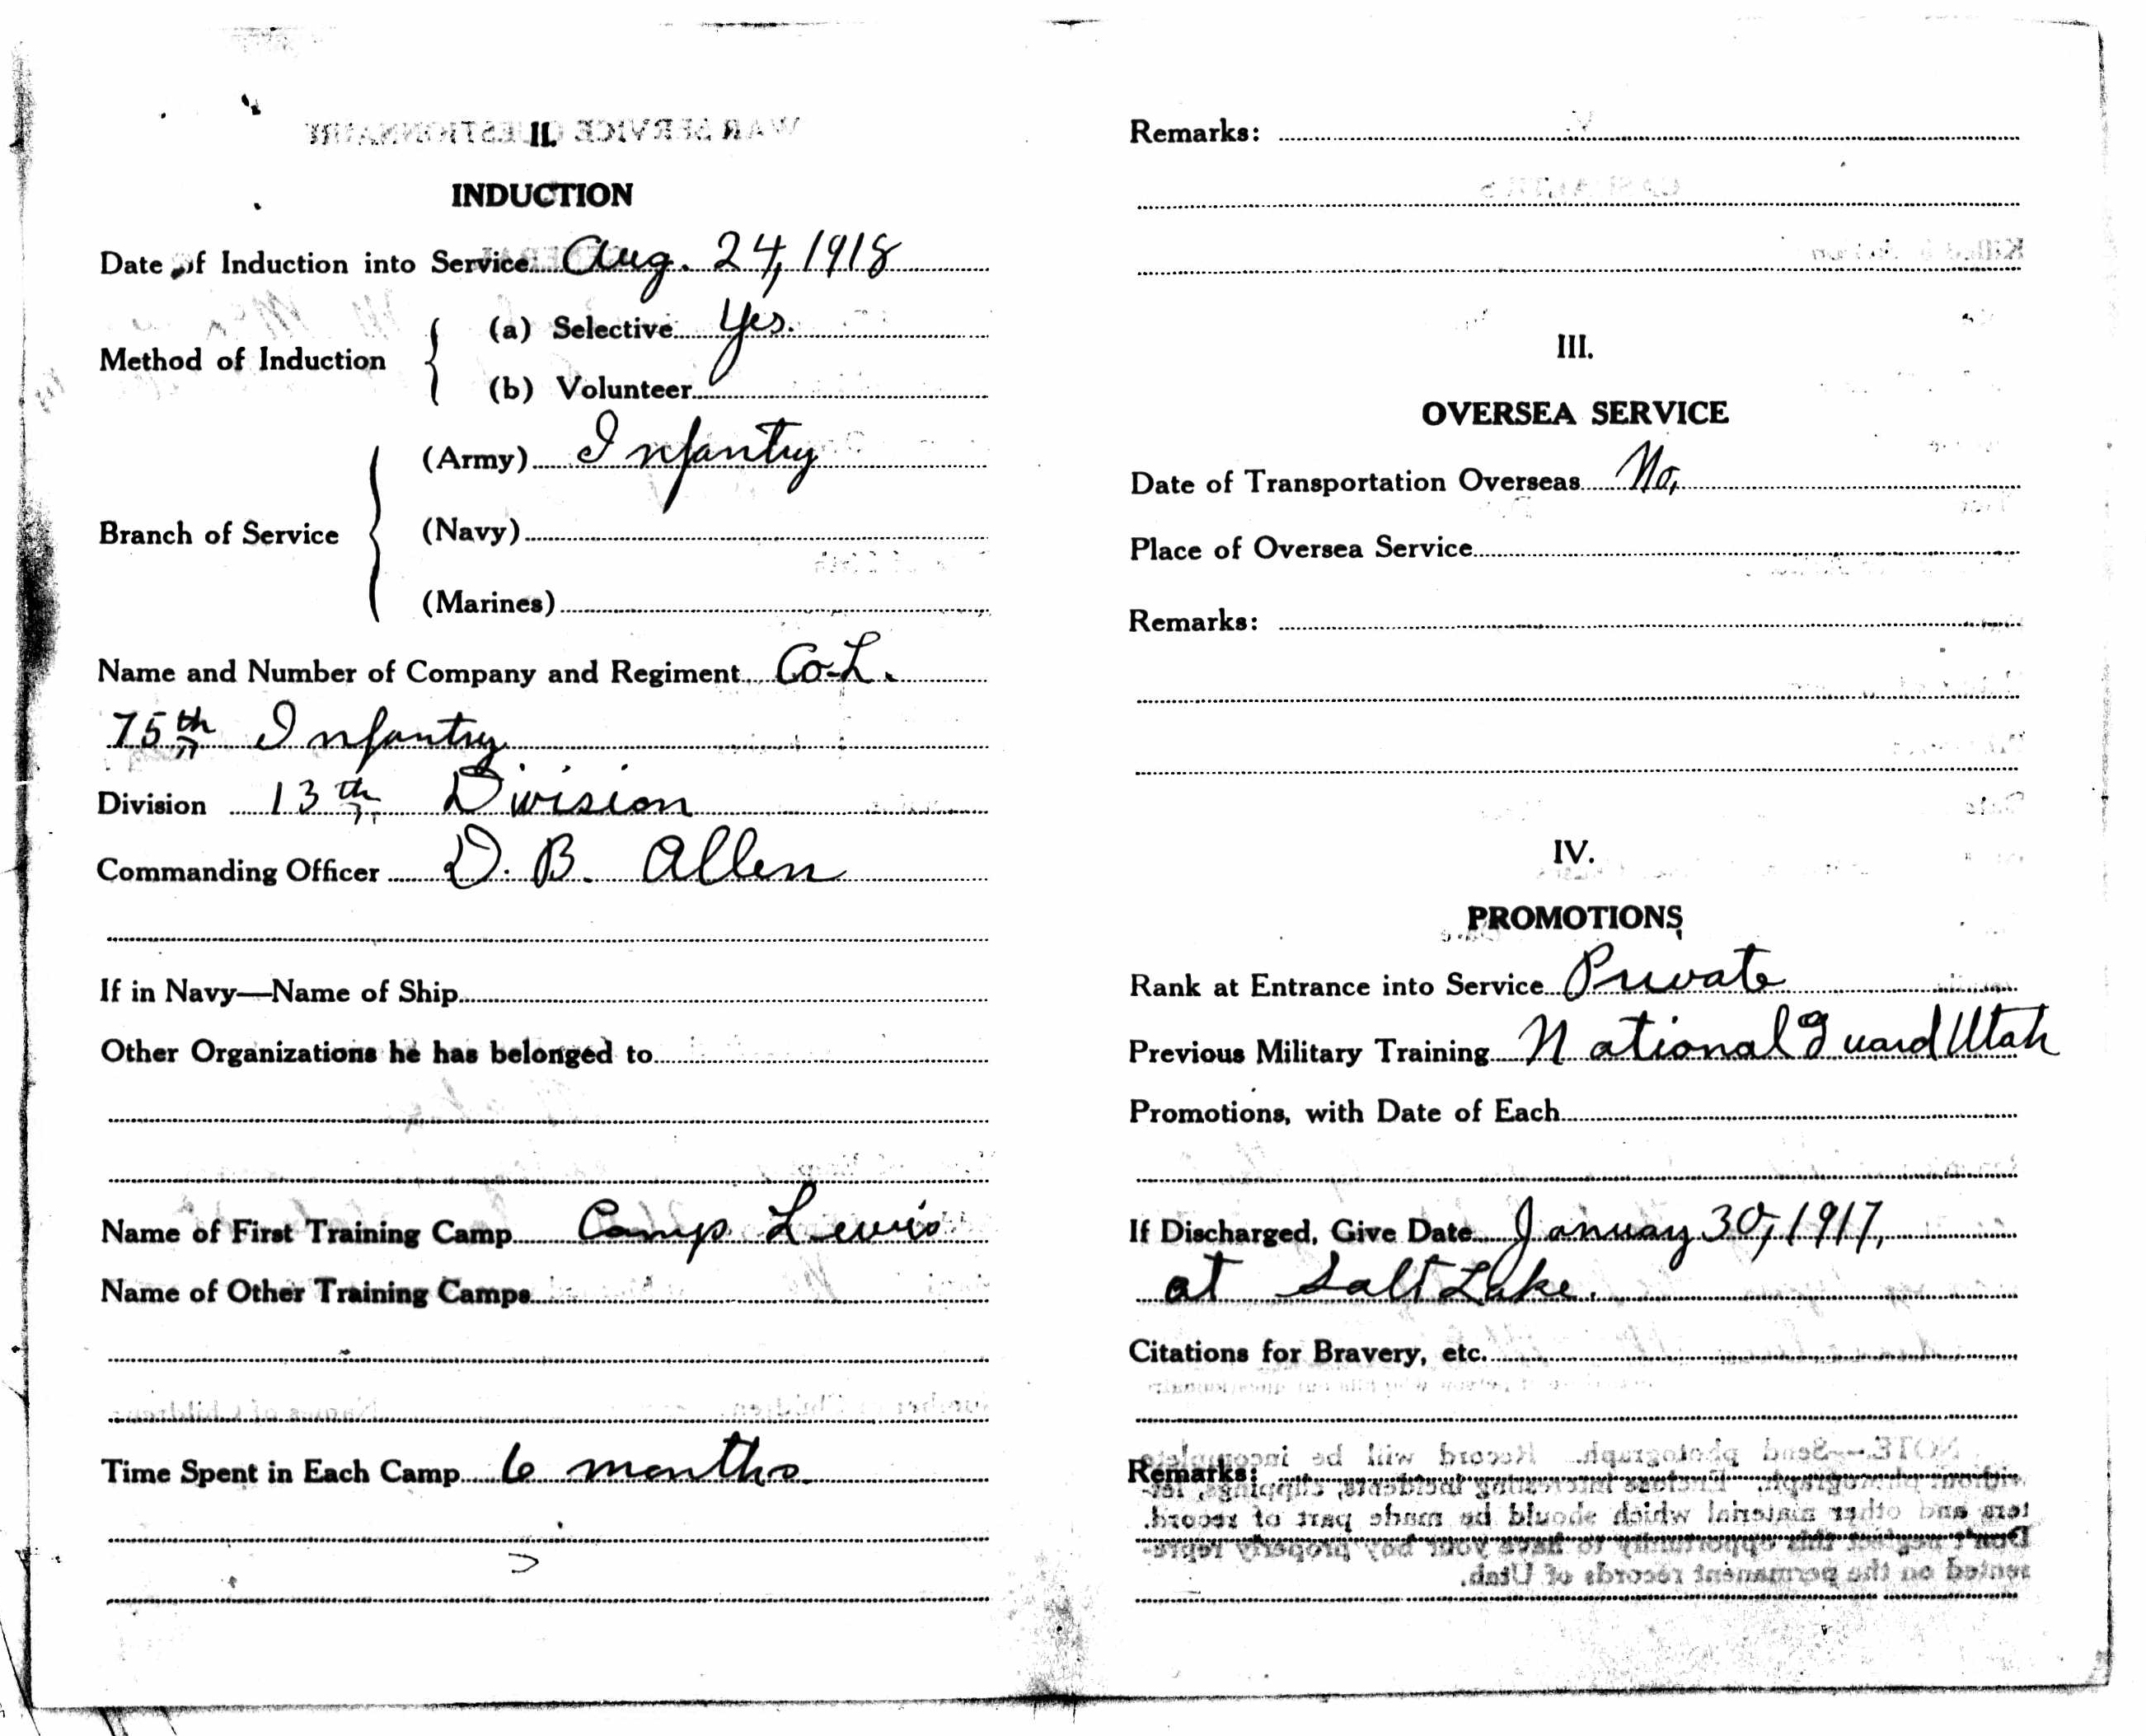 II.
INDUCTION
Date of Induction into Service Aug. 24, 1918
Method of Induction
(a) Selective Yes.
(b) Volunteer
Branch of Service
(Army) Infantry
(Navy)
(Marines)
Name and Number of Company and Regiment Co-L.
75th Infantry
Division 13th Division
Commanding Officer D. B. Allen
If in Navy—Name of Ship
Other Organizations he has belonged to
Name of First Training Camp Camp Lewis
Name of Other Training Camps
Time Spent in Each Camp 6 months.
Remarks:
III.
OVERSEA SERVICE
Date of Transportation Overseas No,
Place of Oversea Service
Remarks:
IV.
PROMOTIONS
Rank at Entrance into Service Private
Previous Military Training National Guard Utah
Promotions, with Date of Each
If Discharged, Give Date January 30, 1917,
at Salt Lake.
Citations for Bravery, etc.
Remarks: